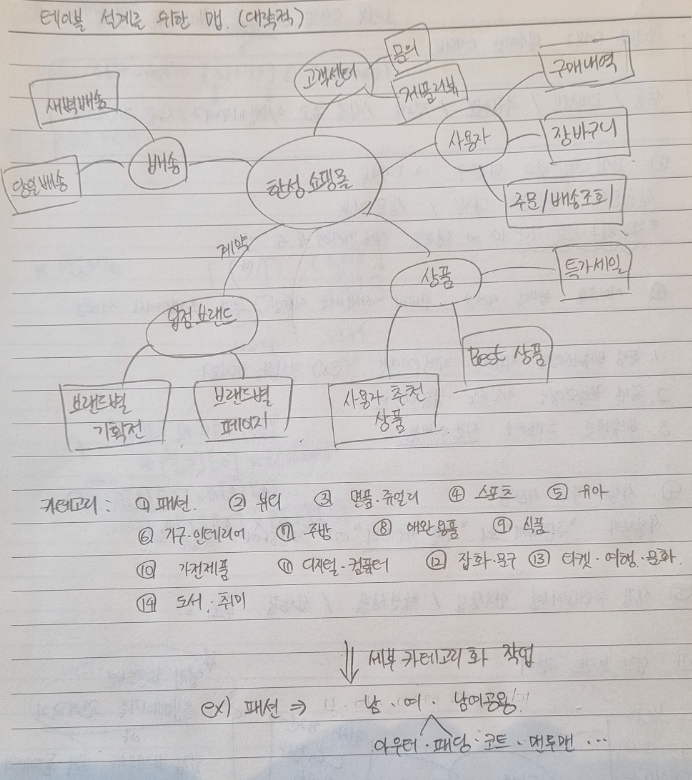 테이블 설계를 위한 맵. (대략적)
고객센터
문의
제품리뷰
사용자
구매내역
장바구니
주문/배송조회
새벽배송
당일배송
배송
한성쇼핑몰
계약
입점브랜드
브랜드별
기획전
브랜드별
페이지
상품
특가세일
Best 상품
사용자 추천
상품
카테고리 : ① 패션. ② 뷰티 ③ 명품·쥬얼리 ④ 스포츠 ⑤ 유아
⑥ 가구·인테리어 ⑦ 주방 ⑧ 애완용품 ⑨ 식품
⑩ 가전제품 ⑪ 디지털·컴퓨터 ⑫ 잡화·문구 ⑬ 티켓·여행·문화
⑭ 도서·취미
세부 카테고리화 작업
ex) 패션 ⇒ 남 · 여 · 남여공용
아우터 · 패딩 · 코트 · 맨투맨 ...